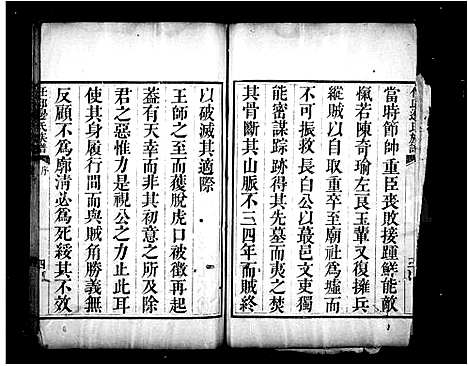 當時節帥重臣喪敗接踵鮮能敵
愾若陳奇瑜左良玉輩又復擁兵
縱賊以自重卒至廟社爲墟而
不可振救長白公以蕞邑文吏獨
能密謀踪跡得其先墓而夷之焚
其骨斷其山脈不三四年而賊終
以破滅其適際
王師之至而獲脫虎口被徵再起
葢有天幸而非初意之所及除
君之惡惟力是視公之力止此耳
使其身履行間與賊角勝義無
反顧不爲廓清必爲死綏其不效
任邱邊氏族譜
序
四